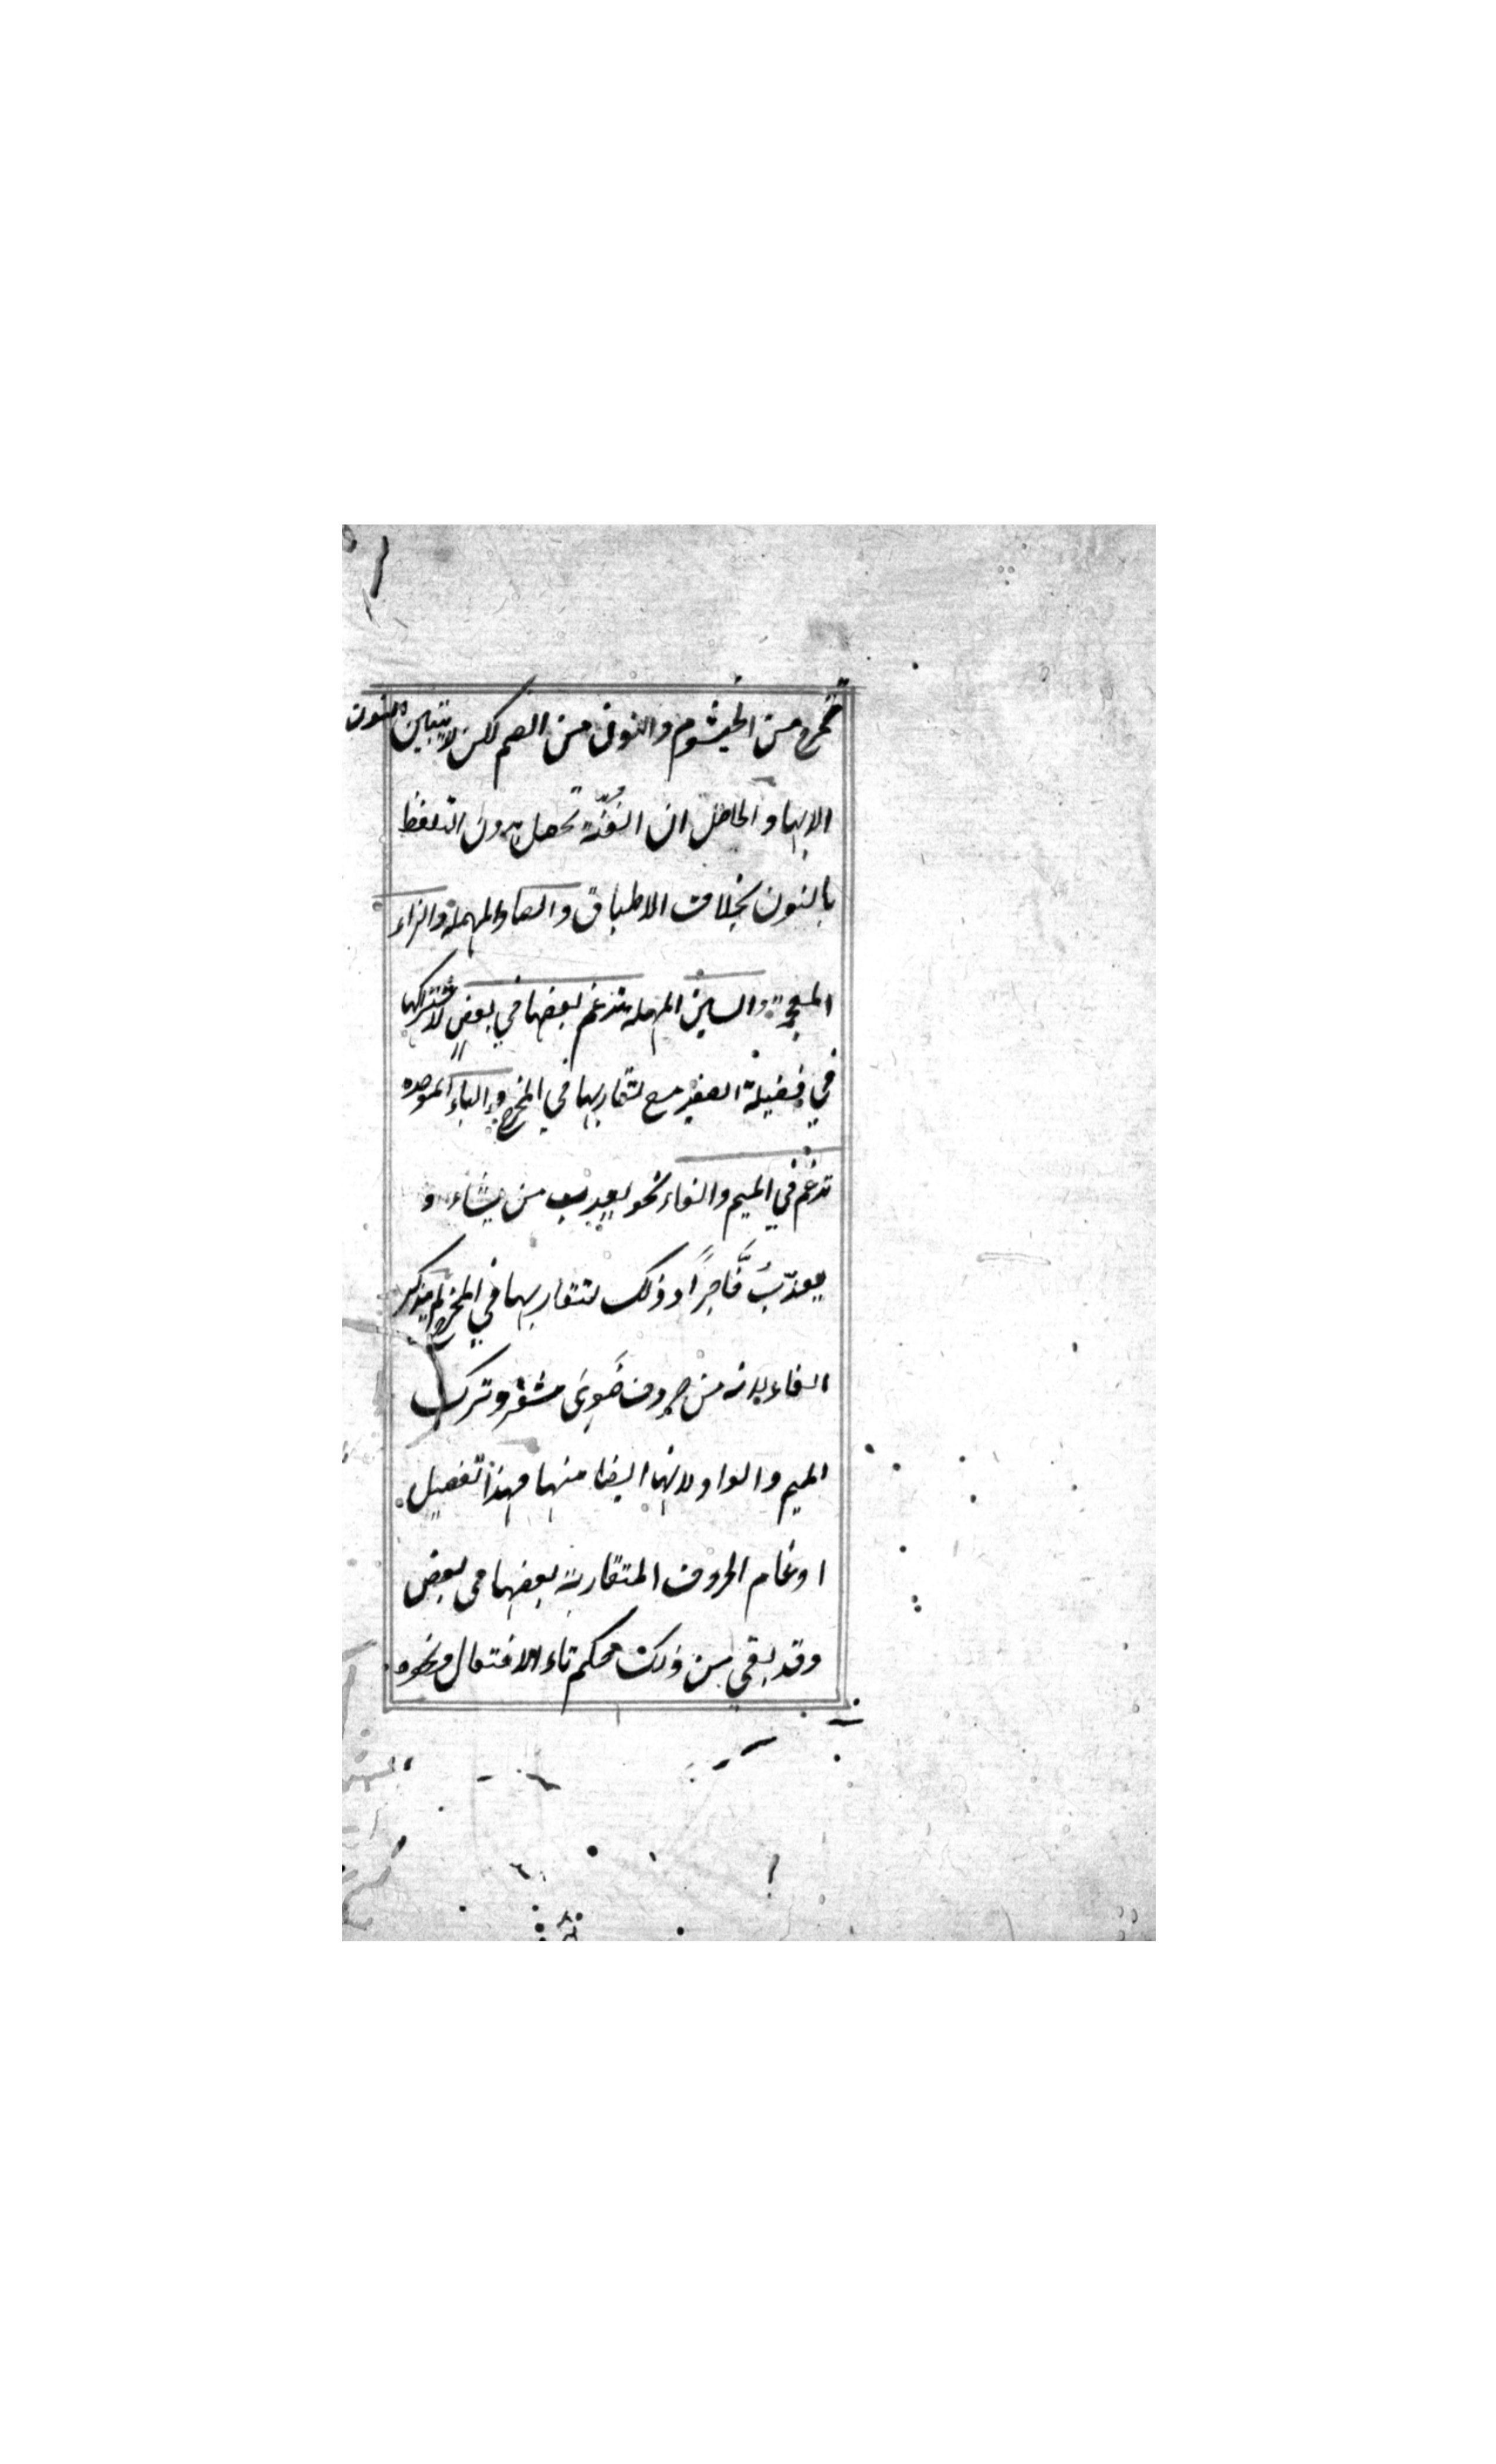 تخرج من الخيشوم والنون من الفم لكن لا يتبين النون
الا بها والحاصل ان الغُنّة تحصل بدون التلفظ
بالنون بخلاف الاطباق والصاد المهملة والزاء
المعجمة والسين المهملة تدغم بعضها في بعضٍ لاشتراكها
في فضيلة الصفير مع تقاربها في المخرج والباء الموحدة
تدغم في الميم والفاء نحو يعذب من يشاء و
يعذّبُ فَّاجِرًا وذلك لتقاربهما في المخرج ولم يذكر
الفاء لانه من حروف ضَوِىَ مشفر وترك
الميم والواو لانهما ايضا منها فهذا تفصيل
ادغام الحروف المتقاربة بعضها في بعض
وقد بقي من ذلك حكم تاء الافتعال ونحوه